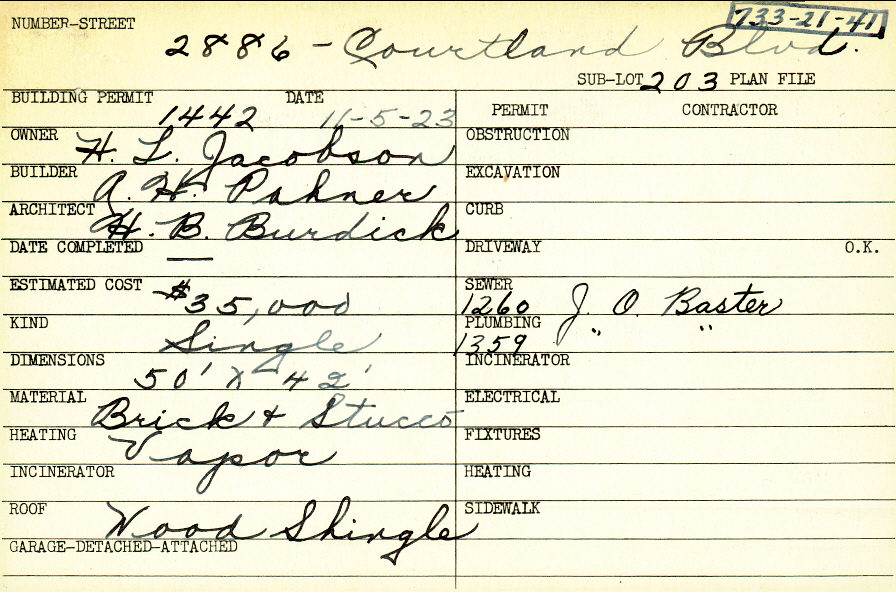 733-21-41
NUMBER-STREET
2886 - Courtland Blvd.
SUB-LOT 203 PLAN FILE
BUILDING PERMIT DATE
1442 11-5-23
OWNER H. L. Jacobson
BUILDER A. H. Pahner
ARCHITECT H. B. Burdick
DATE COMPLETED —
ESTIMATED COST $35,000
KIND Single
DIMENSIONS 50' X 42'
MATERIAL Brick & Stucco
HEATING Vapor
INCINERATOR
ROOF Wood Shingle
GARAGE-DETACHED-ATTACHED
PERMIT CONTRACTOR
OBSTRUCTION
EXCAVATION
CURB
DRIVEWAY O.K.
SEWER
1260 J. O. Baster
PLUMBING
1359 " "
INCINERATOR
ELECTRICAL
FIXTURES
HEATING
SIDEWALK